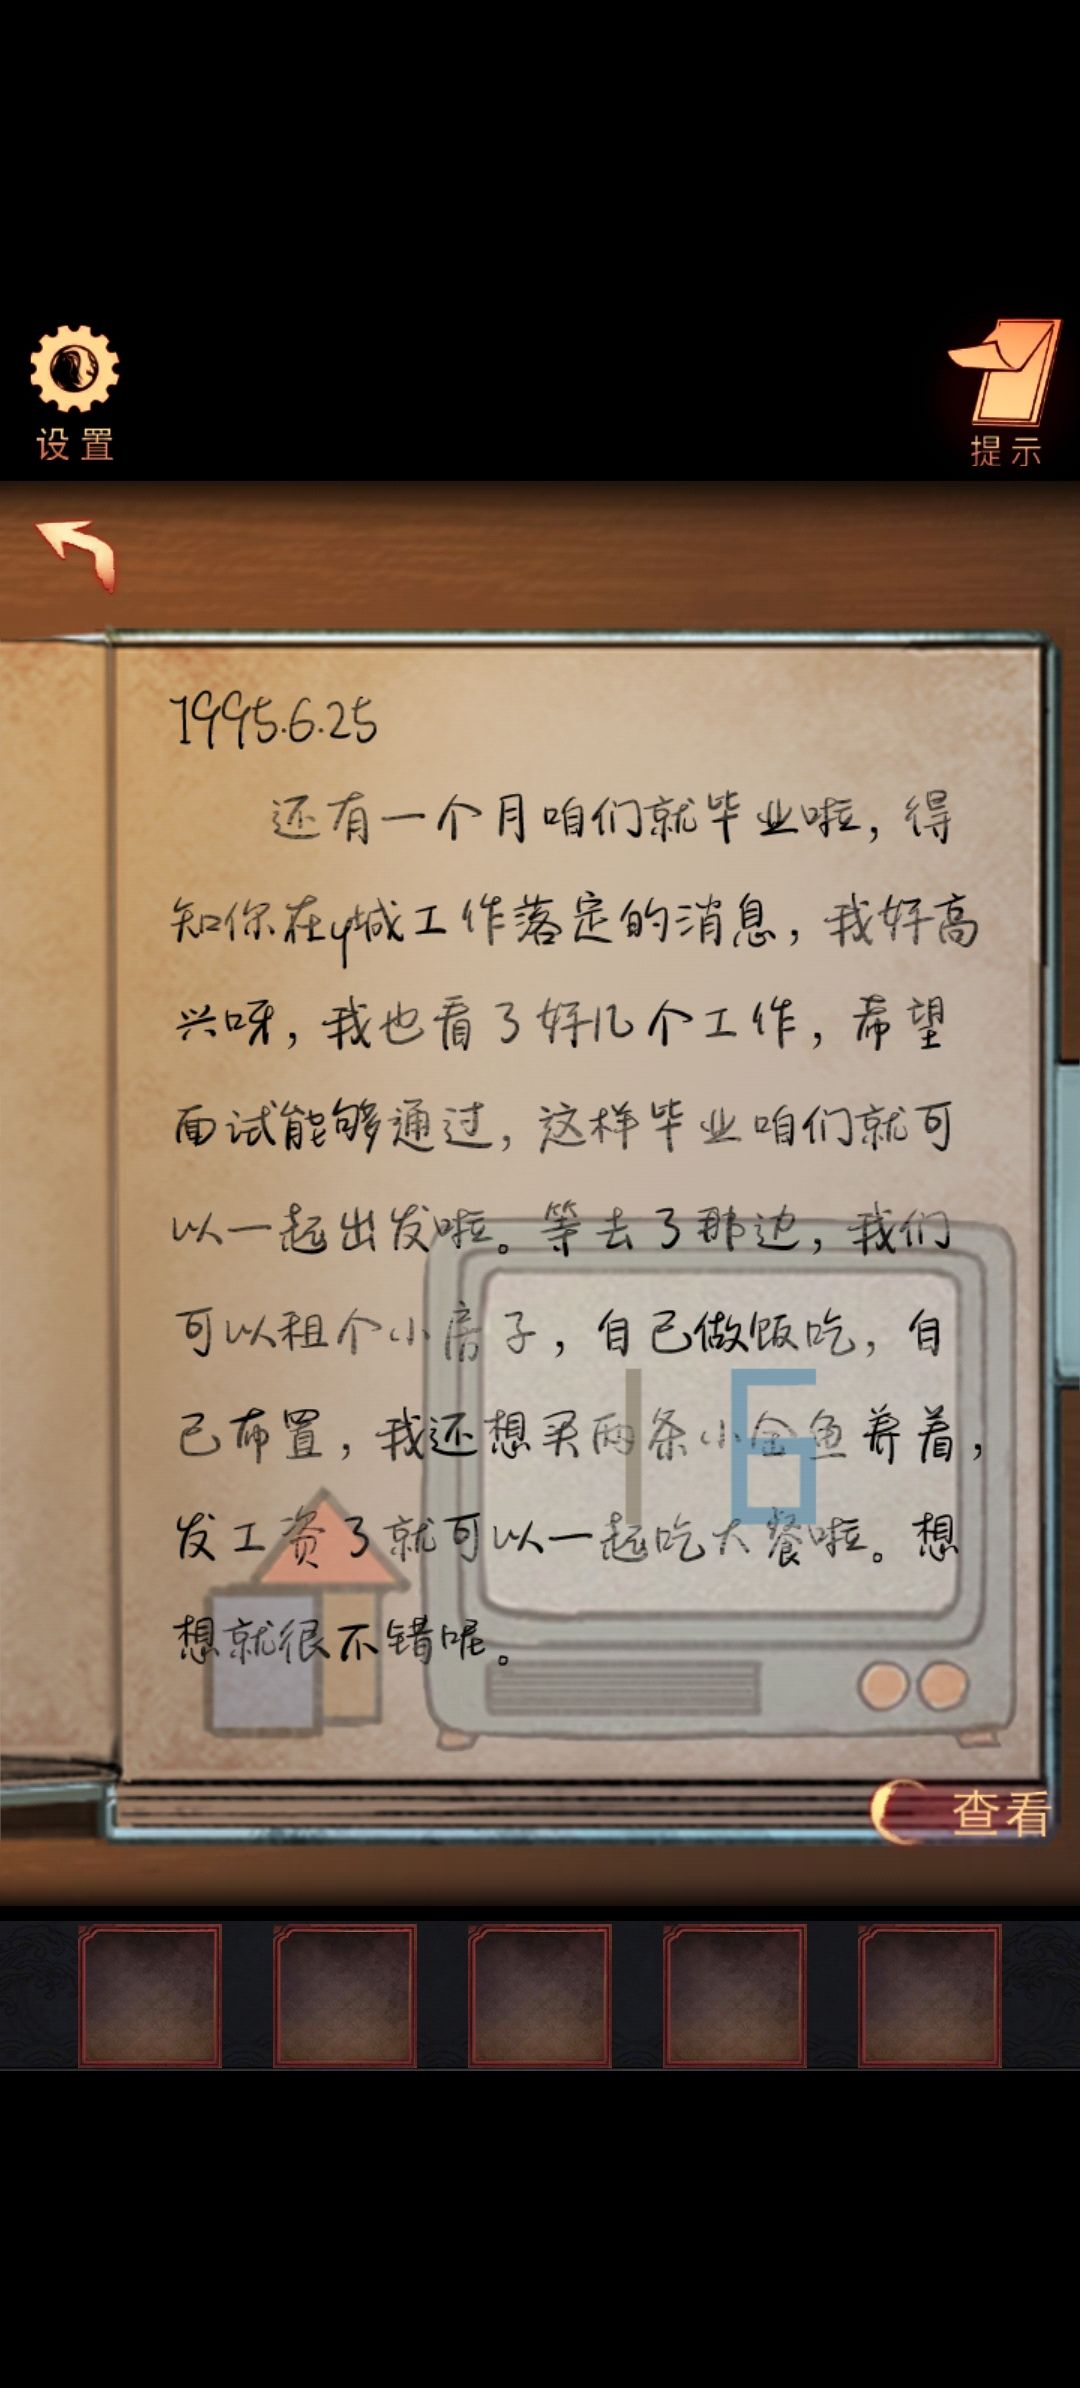 设置
提示
1995.6.25
还有一个月咱们就毕业啦，得
知你在y城工作落定的消息，我好高
兴呀，我也看了好几个工作，希望
面试能够通过，这样毕业咱们就可
以一起出发啦。等去了那边，我们
可以租个小房子，自己做饭吃，自
己布置，我还想买两条小金鱼养着，
发工资了就可以一起吃大餐啦。想
想就很不错呢。
16
查看